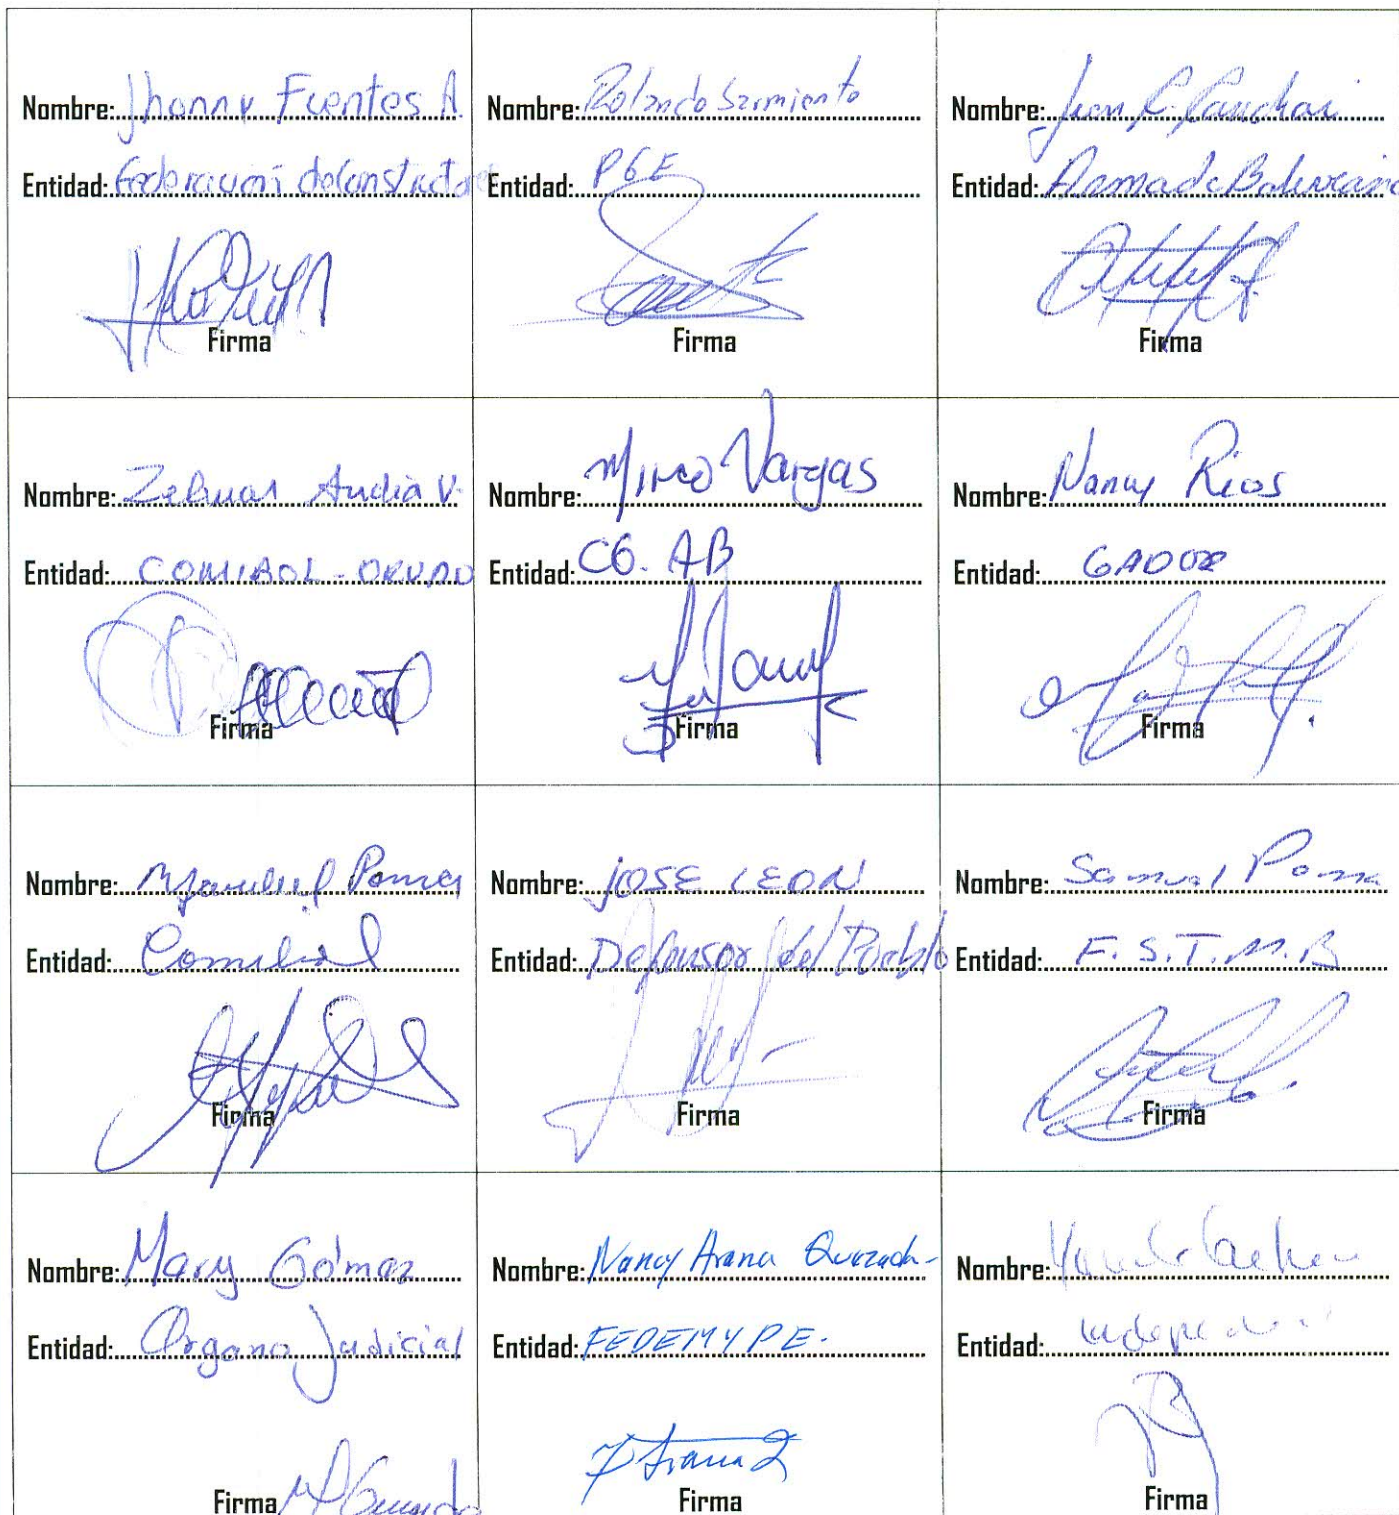 Nombre: Jhonny Fuentes A.
Entidad: Federación de Constructores
Firma
Nombre: Rolando Sarmiento
Entidad: PGE
Firma
Nombre: Juan
Entidad: Armada Boliviana
Firma
Nombre: Zelmar Andia V.
Entidad: COMIBOL - ORURO
Firma
Nombre: Mirco Vargas
Entidad: CG. AB
Firma
Nombre: Nancy Rios
Entidad: GADOR
Firma
Nombre:
Entidad: Comibol
Firma
Nombre: JOSE LEON
Entidad: Defensor del Pueblo
Firma
Nombre: Samuel Poma
Entidad: F.S.T.M.B
Firma
Nombre: Mary Gómez
Entidad: Organo Judicial
Firma
Nombre: Nancy Arana Quezada-
Entidad: FEDEMYPE.
Firma
Nombre:
Entidad:
Firma